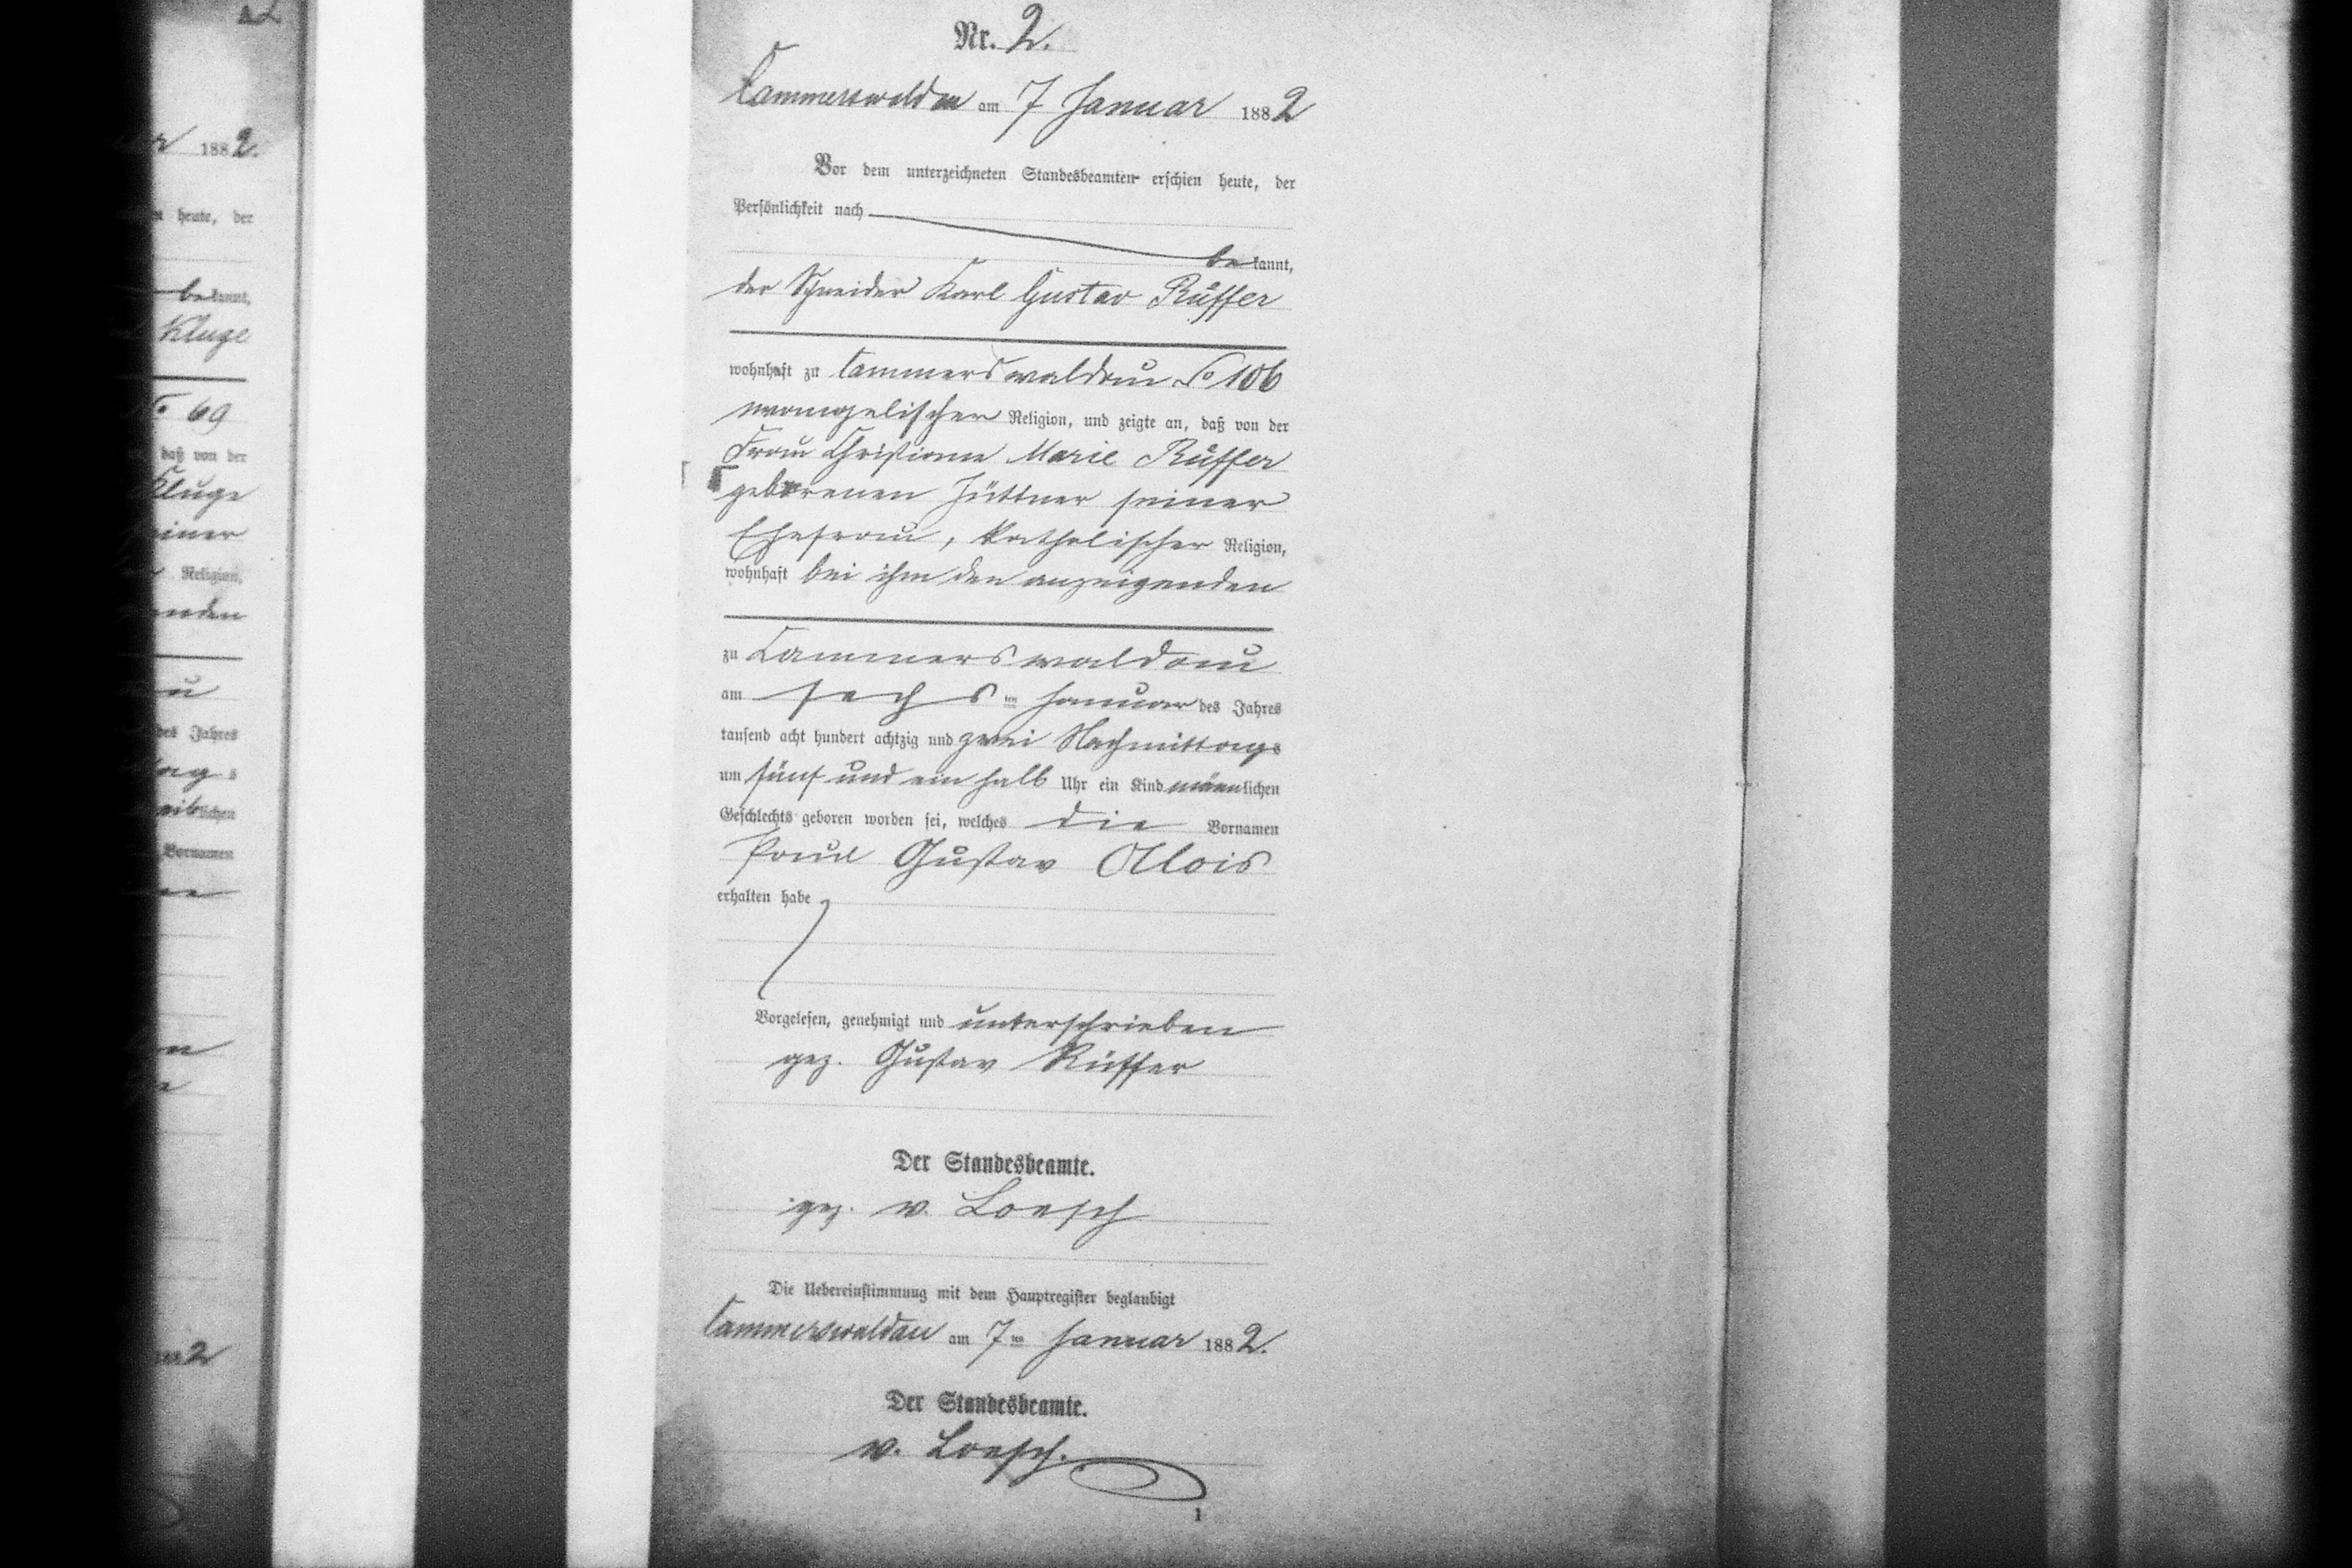 Nr. 2.
Cammerswaldau am 7 Januar 1882
Vor dem unterzeichneten Standesbeamten erschien heute, der
Persönlichkeit nach
bekannt,
der Schneider Karl Gustav Rüffer
wohnhaft zu Cammerswaldau No 106
evangelischer Religion, und zeigte an, daß von der
Frau Christiane Marie Rüffer
geborenen Hüttner seiner
Ehefrau, katholischer Religion,
wohnhaft bei ihm den anzeigenden
zu Cammerswaldau
am sechsten Januar des Jahres
tausend acht hundert achtzig und zwei Nachmittags
um fünf und ein halb Uhr ein Kind männlichen
Geschlechts geboren worden sei, welches die Vornamen
Paul Gustav Alois
erhalten habe
Vorgelesen, genehmigt und unterschrieben
gez. Gustav Rüffer
Der Standesbeamte.
gez. v. Loesch
Die Uebereinstimmung mit dem Hauptregister beglaubigt
Cammerswaldau am 7ten Januar 1882.
Der Standesbeamte.
v. Loesch.
1
1882.
heute, der
bekannt,
Kluge
No 69
daß von der
Kluge
seiner
Religion,
des Jahres
lichen
Vornamen